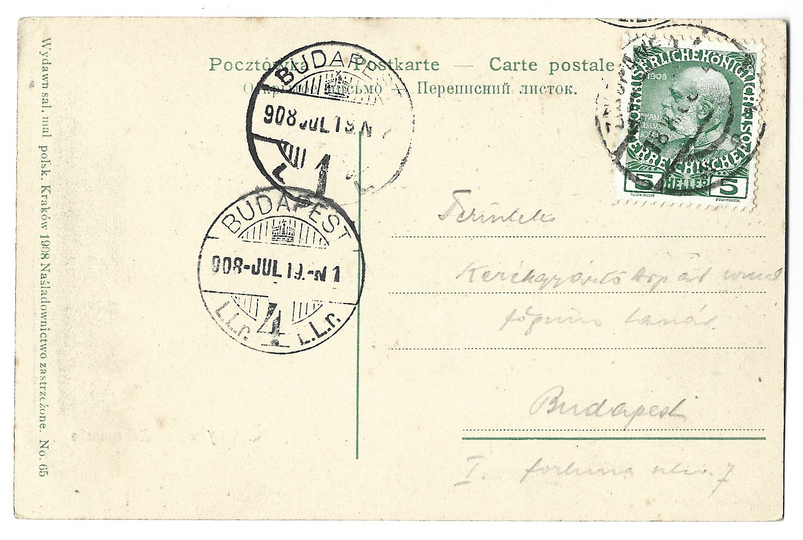 Pocztówka — Postkarte — Carte postale
Открытое письмо — Переписний листок.
Wydawn sal. mal polsk. Kraków 1908 Naśladownictwo zastrzeżone. No. 65
BUDAPEST
908 JUL 19. N
1
BUDAPEST
908-JUL 19.-N 1
4
I.L.r. I.L.r.
ZAKOPANE
1908
5 HELLER 5
Kerékgyártó Árpád
főgimn tanár
Budapest
I. fortuna utca 7